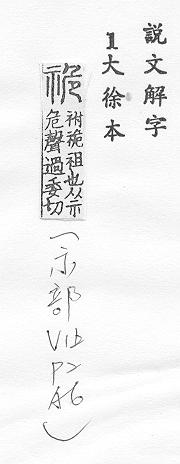 說文解字
1大徐本
祪
祔祪祖也从示
危聲過委切
(示部 V1b P2 A6)